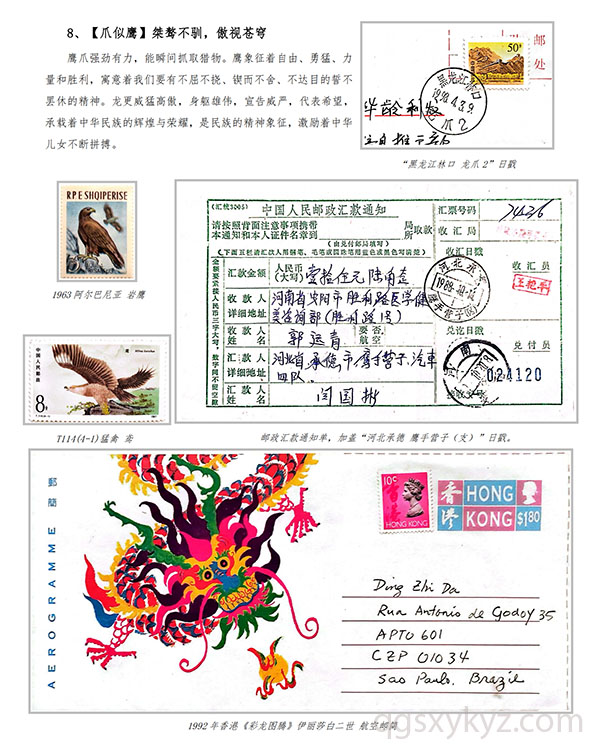 8、【爪似鹰】桀骜不驯，傲视苍穹
鹰爪强劲有力，能瞬间抓取猎物。鹰象征着自由、勇猛、力
量和胜利，寓意着我们要有不屈不挠、锲而不舍、不达目的誓不
罢休的精神。龙更威猛高傲，身躯雄伟，宣告威严，代表希望，
承载着中华民族的辉煌与荣耀，是民族的精神象征，激励着中华
儿女不断拼搏。
50分
邮
处
黑龙江林口
1998.4.3.9
龙爪2
“黑龙江林口 龙爪2”日戳
RPE SHQIPERISE
1963阿尔巴尼亚 岩鹰
中国人民邮政
8分
T114(4-1)猛禽 鸢
(汇候3005)
中国人民邮政汇款通知
请按照背面注意事项携带
本通知和本人证件名章到
局
所
取款
(由兑付局填写)
汇票号码
收汇日戳
收汇员
兑讫日戳
兑付员
汇款金额
人民币
(大写)
收款人
详细地址
收款人
姓名
要否
航空
汇款人
详细地址
汇款人
姓名
郭运青
河北省承德市鹰手营子汽车
四队
闫国彬
河北承德
鹰手营子(支)
河南
024120
邮政汇款通知单，加盖“河北承德 鹰手营子（支）”日戳。
郵簡
AEROGRAMME
10c
HONG KONG
香港
HONG
KONG
$1.80
Ding Zhi Da
Rua Antonio de Godoy 35
APTO 601
CZP 01034
Sao Paulo, Brazil
1992年香港《彩龙图腾》伊丽莎白二世 航空邮简
qgsxykyz.com